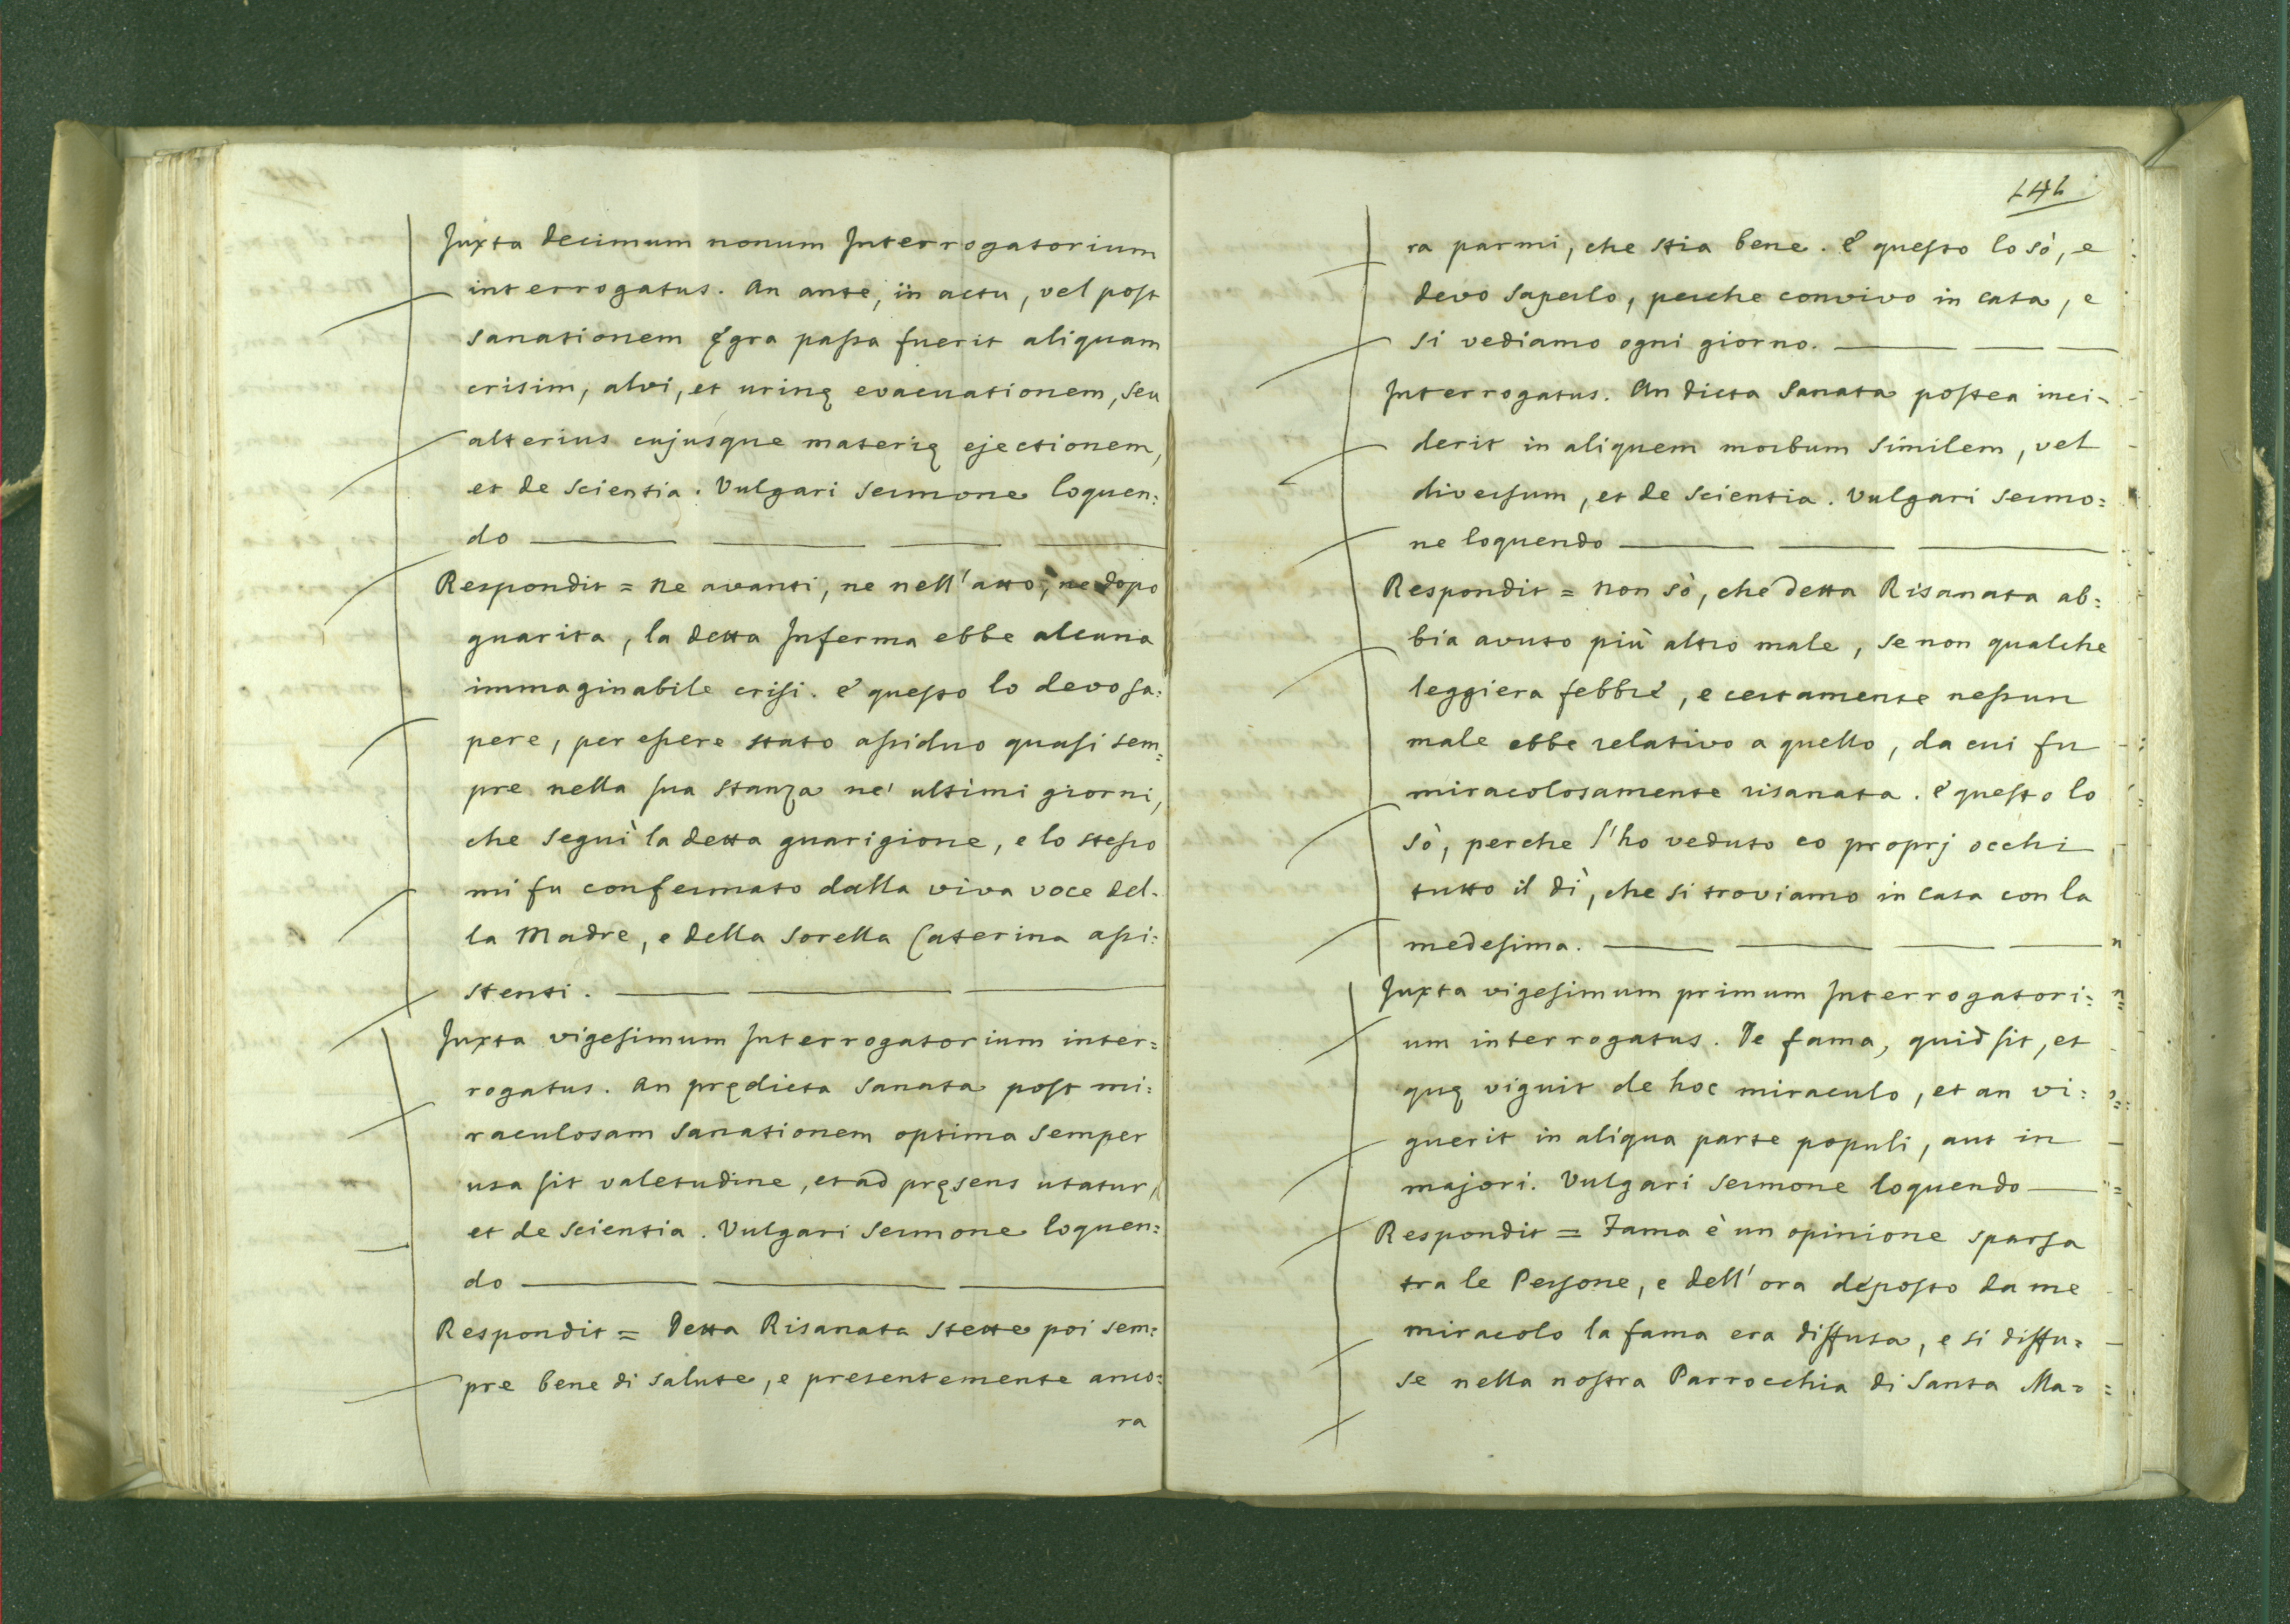 Juxta decimum nonum Interrogatorium
interrogatus. An ante, in actu, vel post
sanationem ęgra passa fuerit aliquam
crisim, alvi, et urinę evacuationem, seu
alterius cujusque materię ejectionem,
et de scientia. Vulgari sermone loquen:
do
Respondit = Ne avanti, ne nell'atto, ne dopo
guarita, la detta Inferma ebbe alcuna
immaginabile crisi. E questo lo devo sa:
pere, per essere stato assiduo quasi sem:
pre nella sua stanza ne' ultimi giorni,
che seguì la detta guarigione, e lo stesso
mi fu confermato dalla viva voce del:
la Madre, e della Sorella Caterina assi:
stenti.
Juxta vigesimum Interrogatorium inter:
rogatus. An prędicta Sanata post mi:
raculosam sanationem optima semper
usa sit valetudine, et ad pręsens utatur,
et de scientia. Vulgari sermone loquen:
do
Respondit = Detta Risanata stette poi sem:
pre bene di salute, e presentemente anco:
ra
ra parmi, che stia bene. E questo lo sò, e
devo saperlo, perche convivo in casa, e
si vediamo ogni giorno.
Interrogatus. An dicta Sanata postea inci-
derit in aliquem morbum similem, vel
diversum, et de scientia. Vulgari sermo:
ne loquendo
Respondit = Non sò, che detta Risanata ab:
bia avuto più altro male, se non qualche
leggiera febbre, e certamente nessun
male ebbe relativo a quello, da cui fu
miracolosamente risanata. E questo lo
sò, perche l'ho veduto co proprj occhi
tutto il dì, che si troviamo in casa con la
medesima.
Juxta vigesimum primum Interrogatori:
um interrogatus. De fama, quid sit, et
quę viguit de hoc miraculo, et an vi:
guerit in aliqua parte populi, aut in
majori. Vulgari sermone loquendo
Respondit = Fama è un opinione sparsa
tra le Persone, e dell'ora deposto da me
miracolo la fama era diffusa, e si diffu:
se nella nostra Parrocchia di Santa Ma: